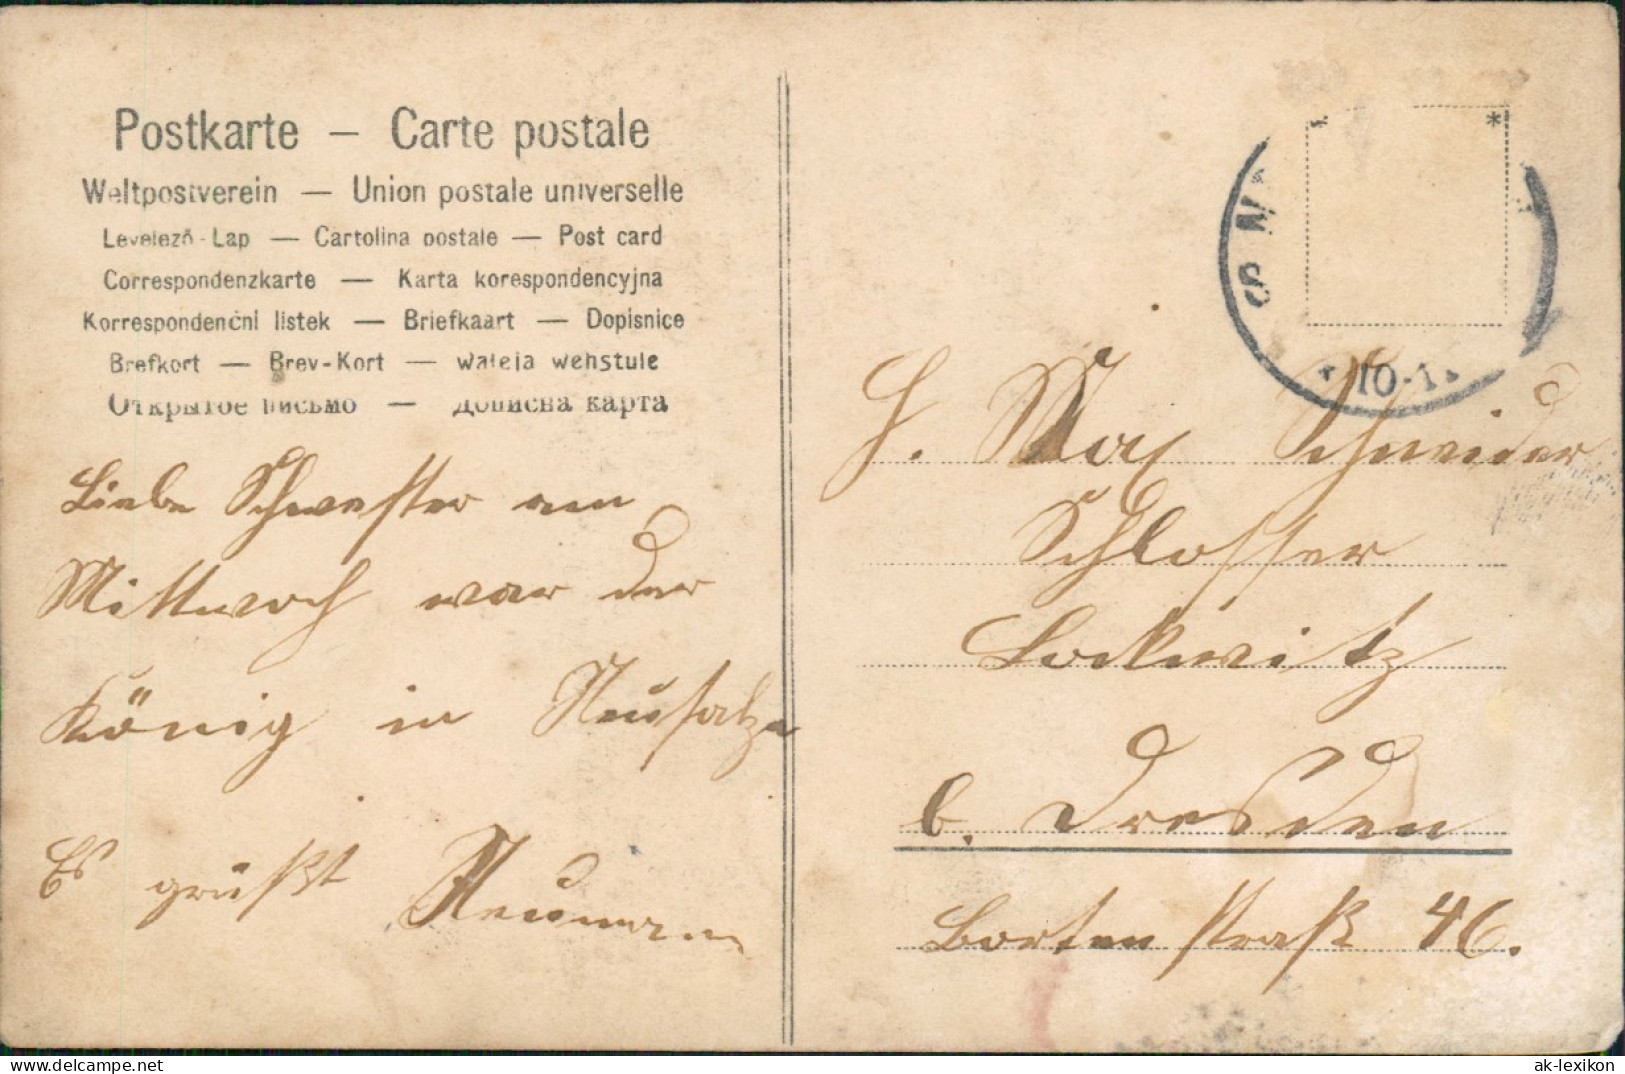 Postkarte — Carte postale
Weltpostverein — Union postale universelle
Levelező-Lap — Cartolina postale — Post card
Correspondenzkarte — Karta korespondencyjna
Korrespondenční listek — Briefkaart — Dopisnice
Brefkort — Brev-Kort — waleja wehstule
Открытое письмо — дописна карта
Liebe Schwester am
Mittwoch war der
König in Neusalza
Es grüßt Neumann
S N
10-1
H. Max Schneider
Schlosser
Lockwitz
b. Dresden
46.
www.delcampe.net
ak-lexikon